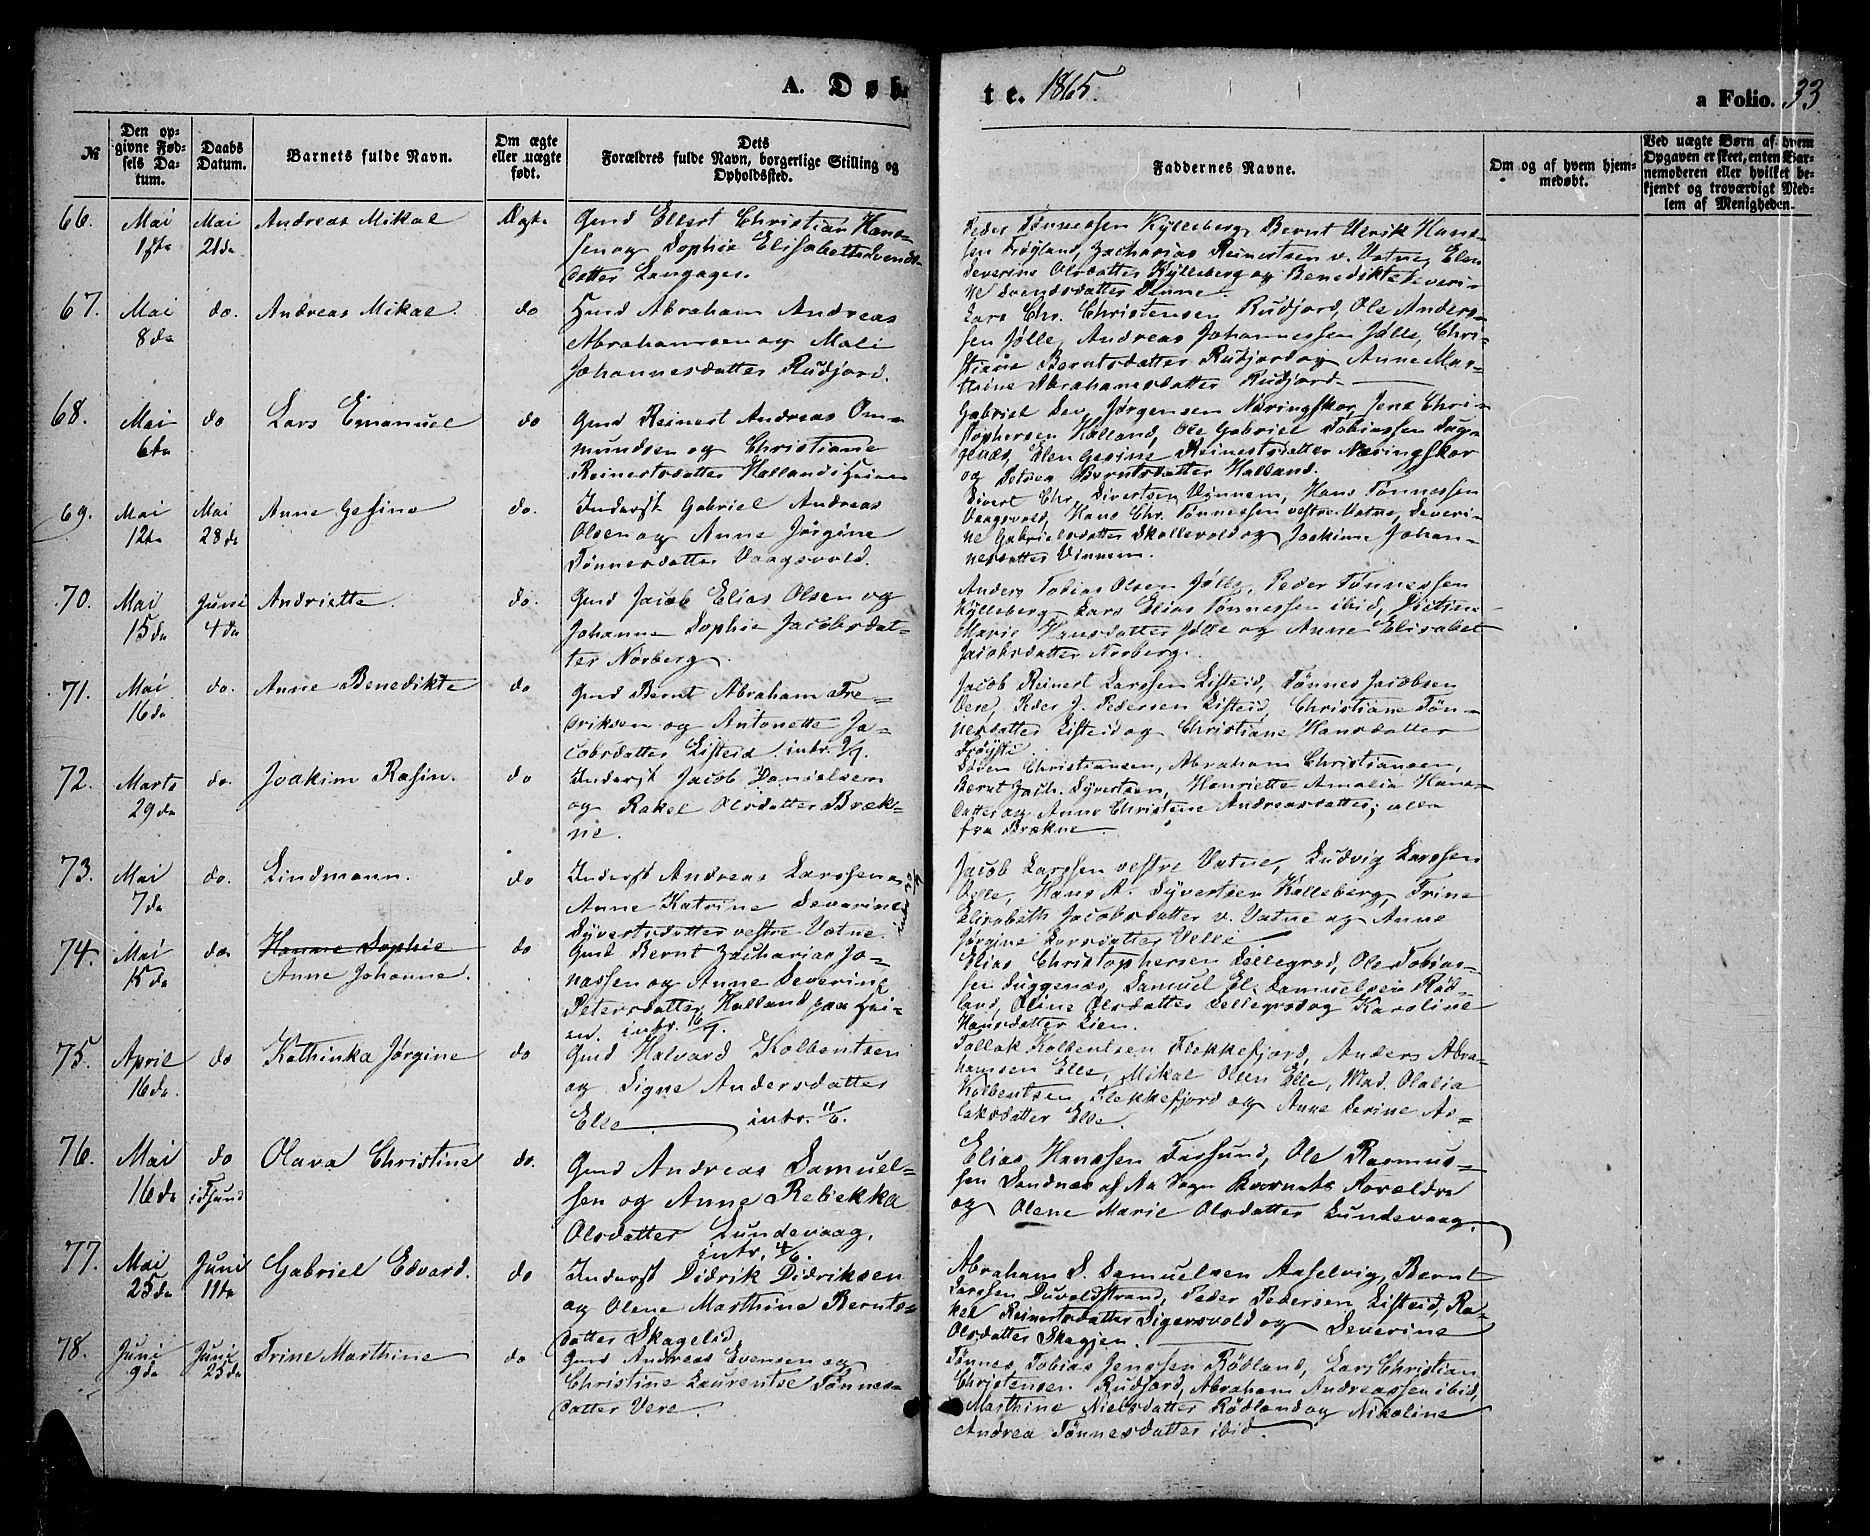 A. Døb-
te. 1865.
a Folio. 33
№
Den op-
givne Fød-
sels Da-
tum.
Daabs
Datum.
Barnets fulde Navn.
Om ægte
eller uægte
født.
Dets
Forældres fulde Navn, borgerlige Stilling og
Opholdssted.
Faddernes Navne.
Om og af hvem hjem-
medøbt.
Ved uægte Børn af hvem
Opgaven er skeet, enten Bar-
nemoderen eller hvilket be-
kjendt og troværdigt Med-
lem af Menigheden.
66.
Mai
Mai
21de
Andreas Mikal
Ægte
Gmd Ellert Christian Hans-
sen og Sophie Elisabeth Svends-
datter Langager.
Peder Tønnessen Kylleberg, Bernt Ulrik Hans-
sen Frøyland, Zacharias Reinertsen v. Vatne, Elen
Severine Olsdatter Kylleberg og Benedikte Severi-
ne Svendsdatter
67.
Mai
8de
do.
Andreas Mikal.
do
Hmd Abraham Andreas
Abrahamsen og Mali
Johannesdatter Rudjord.
Lars Chr. Christensen Rudjord, Ole Anders-
sen Jølle, Andreas Johannessen Jølle, Chri-
stiane Berntsdatter Rudjord og Anne Mar-
thine Abrahamsdatter Rudjord
68.
Mai
6te
do
Lars Emanuel
do
Gmd Reinert Andreas Om-
mundsen og Christiane
Reinertsdatter Halland i Heien
Gabriel Sev. Jørgensen Næringskor, Jens Chri-
stophersen Halland, Ole Gabriel Tobiassen Dug-
genæs, Elen Gesine Reinertsdatter Næringskor
og Berntsdatter Halland.
69.
Mai
12te
Mai
28de
Anne Gesine
do.
Inderst Gabriel Andreas
Olsen og Anne Jørgine
Tønnesdatter Vaagsvold.
Sivert Chr. Sivertsen Vinnem, Hans Tønnessen
Vaagsvold, Hans Chr. Tønnessen vestre Vatne, Severi-
ne Gabrielsdatter Skollevold og Joakime Johan-
nesdatter Vinnem.
70.
Mai
15de
Juni
4de
Andriette.
do.
Gmd Jacob Elias Olsen og
Johanne Sophie Jacobsdat-
ter Norberg.
Anders Tobias Olsen Jølle, Peder Tønnessen
Kylleberg, Lars Elias Tønnessen ibid,
Marie Hansdatter Jølle og Anne Elisabet
Jacobsdatter Norberg.
71.
Mai
16de
do.
Anne Benedikte
do
Gmd Bernt Abraham Fre-
driksen og Antonette Ja-
cobsdatter Listeid. intr. 9/7.
Jacob Reinert Larssen Listeid, Tønnes Jacobsen
Vere, Peder J. Pedersen Listeid, Christiane Tøn-
nesdatter Listeid og Christiane Hansdatter
72.
Marts
29de
do.
Joakim Rasin.
do
Inderst Jacob Danielsen
og Rakel Olsdatter Bræk-
ne.
Søren Christiansen, Abraham Christiansen,
Bernt Jach. Syvertsen, Henriette Amalia Hans-
datter og Anne Christine Andreasdatter, alle
fra Brækne
73.
Mai
7de
do.
Lindmann.
do
Inderst Andreas Larssen og
Anne Katrine Severine
Syvertsdatter vestre Vatne.
Jacob Larssen vestre Vatne, Ludvig Larssen
Velle, Hans A. Syvertsen Kolleberg, Trine
Elisabeth Jacobsdatter v. Vatne og Anne
Jørgine Larsdatter Velle.
74.
Mai
15de
do.
Hanne Sophie
Anne Johanne.
do
Gmd Bernt Zacharias Jo-
nassen og Anne Severine
Petersdatter Halland paa Hei-
en. intr. 16/7.
Elias Christophersen Sellegrod, Ole Tobias-
sen Duggenæs, Samuel El. Samuelsen Rød-
land, Oline Olsdatter Sellegrod og Karoline
Hansdatter Lien.
75.
April
16de
do
Kathinka Jørgine
do
Gmd Halvard Kolbentsen
og Signe Andersdatter
Elle intr. 11/6.
Tollak Kolbentsen Flekkefjord, Anders Abra-
hamsen Elle, Mikal Olsen Elle, Mad. Olalia
Kolbentsen, Flekkefjord og Anne Serine As-
laksdatter Elle.
76.
Mai
16de
do
i Fsund
Olava Christine
do.
Gmd Andreas Samuel-
sen og Anne Rebekka
Olsdatter Lundevaag.
intr. 4/6.
Elias Hanssen Farsund, Ole Rasmus-
sen Sandnæs af Aa Sogn Barnets Forældre
og Olene Marie Olsdatter Lundevaag.
77.
Mai
25de
Juni
11te
Gabriel Edvard.
do
Inderst Didrik Didriksen
og Olene Marthine Bernts-
datter Skagelid.
Abraham S. Samuelsen Aaselvig, Bernt
Larssen Duvoldstrand, Peder Pedersen Listeid, Ra-
kel Reinertsdatter Sigersvold og Severine
Olsdatter Skagjen.
78.
Juni
9de
Juni
25de
Trine Marthine
do
Gmd Andreas Evensen og
Christine Laurentse Tønnes-
datter Vere.
Tønnes Tobias Jenssen Rødland, Lars Christian
Christensen Rudjord, Abraham Andreassen ibid,
Marthine Nielsdatter Rødland og Nikoline
Andrea Tønnesdatter ibid.